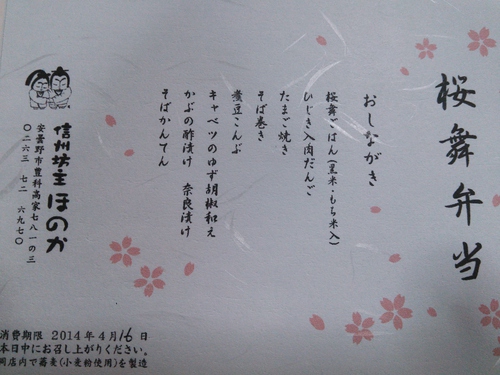 桜舞弁当
おしながき
桜舞ごはん(黒米・もち米入)
ひじき入肉だんご
たまご焼き
そば巻き
煮豆こんぶ
キャベツのゆず胡椒和え
かぶの酢漬け 奈良漬け
そばかんてん
信州坊主 ほのか
安曇野市豊科高家七八一の三
〇二六三 七二 六九七〇
消費期限 2014年4月16日
本日中にお召し上がりください。
同店内で蕎麦(小麦粉使用)を製造